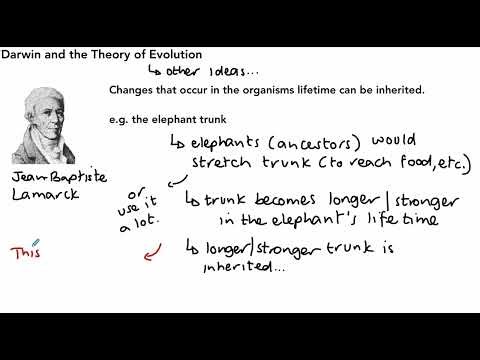 Darwin and the Theory of Evolution
↳ other ideas...
Changes that occur in the organisms lifetime can be inherited.
e.g. the elephant trunk
↳ elephants (ancestors) would
stretch trunk (to reach food, etc.)
Jean Baptiste
Lamarck
or
use it
a lot.
↳ trunk becomes longer/stronger
in the elephant's lifetime
↳ longer/stronger trunk is
inherited...
This